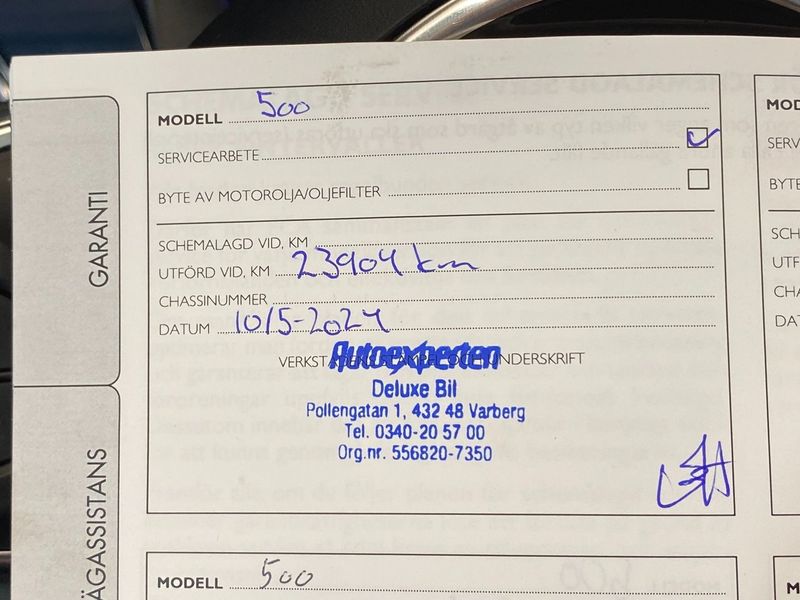 GARANTI
VÄGASSISTANS
MODELL 500
SERVICEARBETE
BYTE AV MOTOROLJA/OLJEFILTER
SCHEMALAGD VID, KM
UTFÖRD VID, KM 23904 km
CHASSINUMMER
DATUM 10/5-2024
VERKSTADENS STÄMPEL OCH UNDERSKRIFT
Autoexperten
Deluxe Bil
Pollengatan 1, 432 48 Varberg
Tel. 0340-20 57 00
Org.nr. 556820-7350
MODELL 500